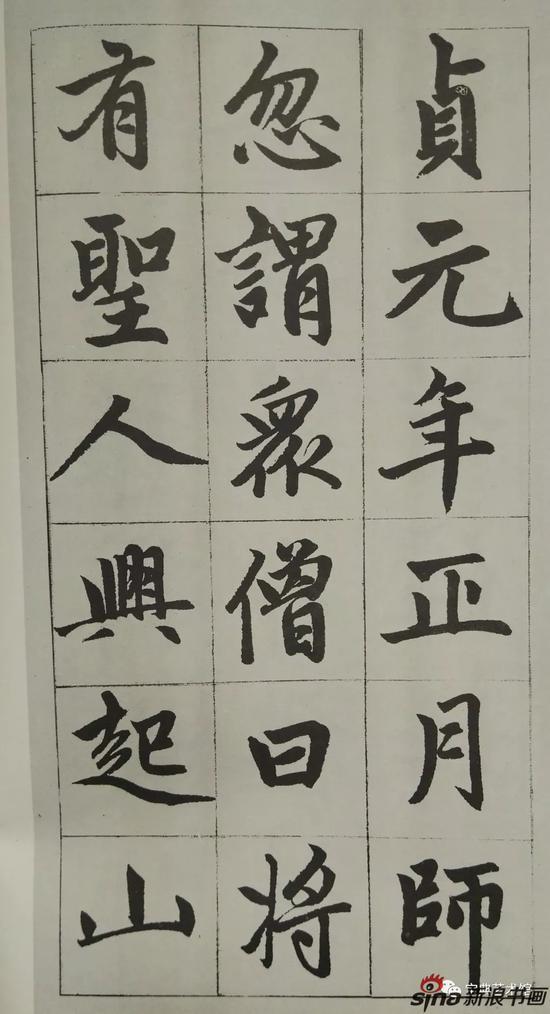 貞元年正月師
忽謂眾僧曰將
有聖人興起山
sina新浪书画